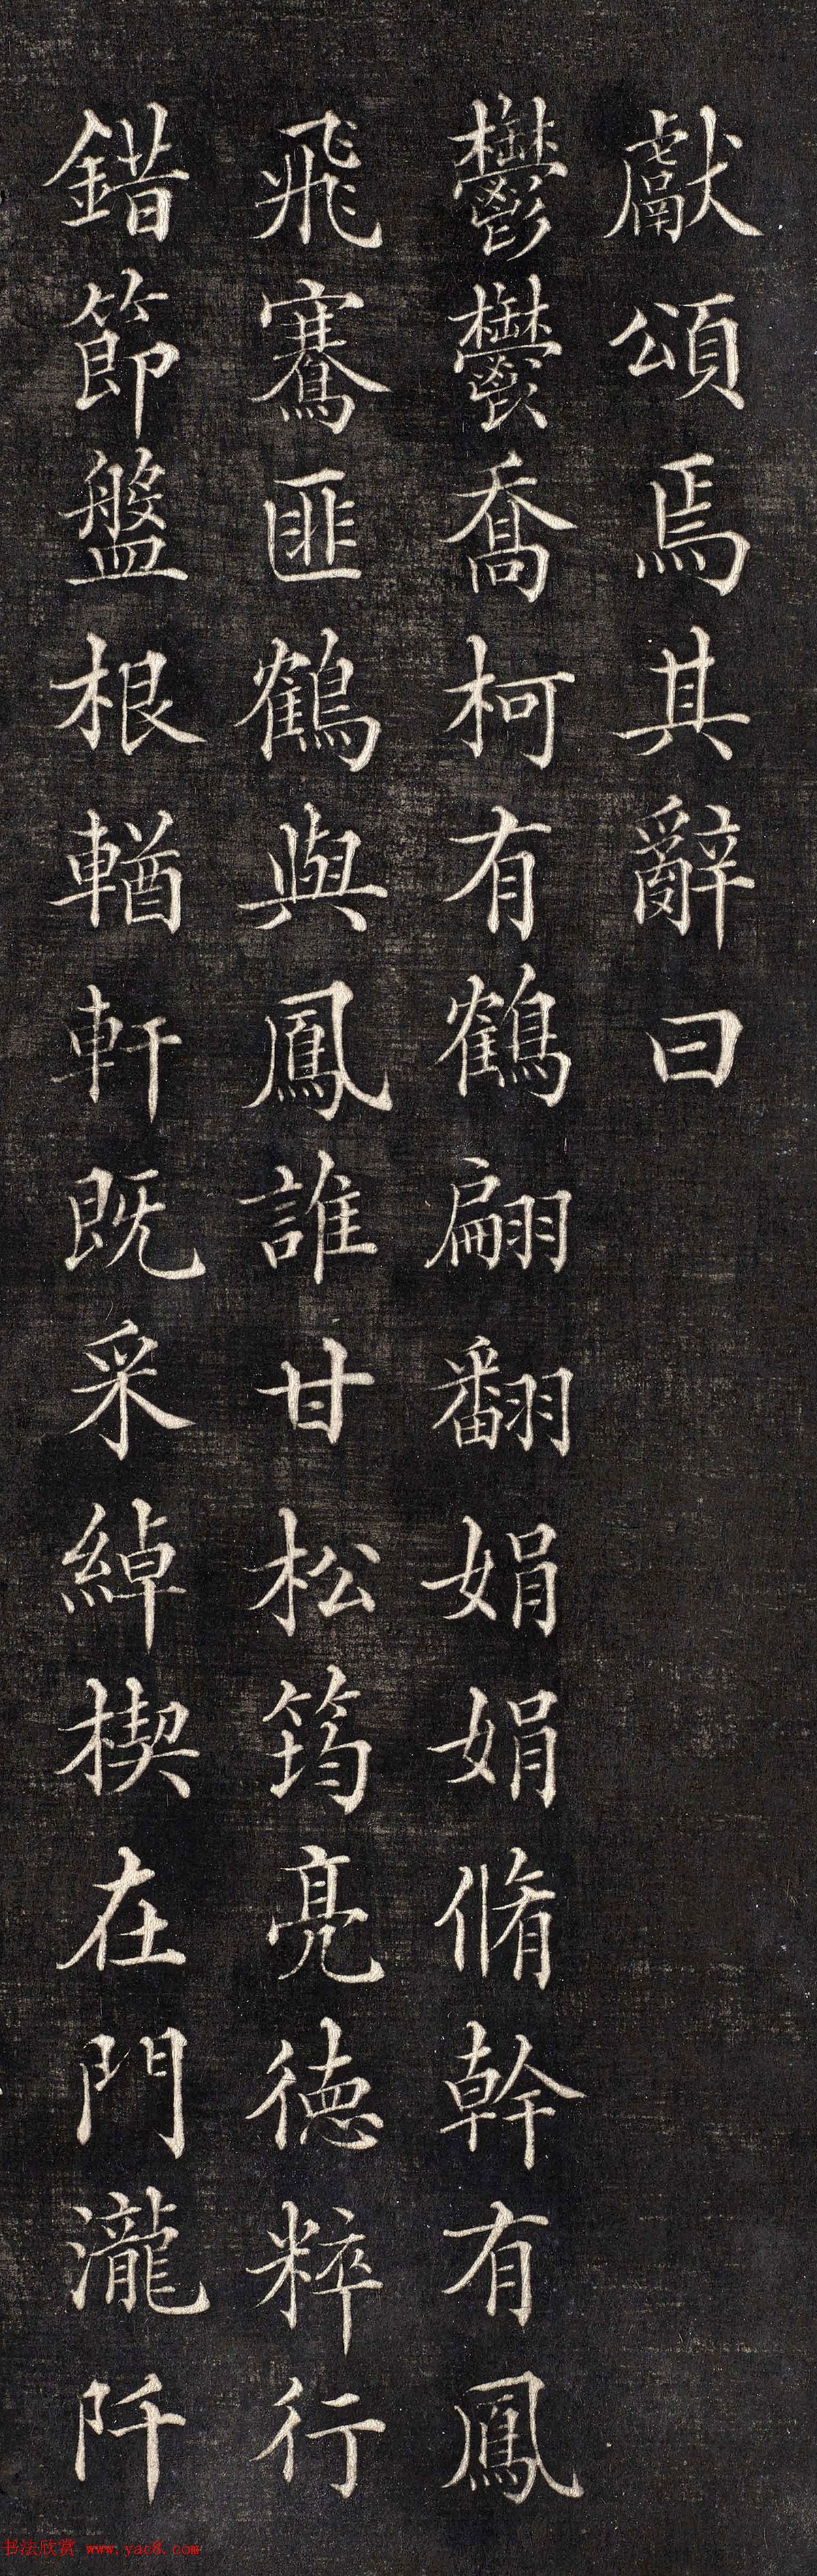 獻頌焉其辭曰
鬱鬱喬柯有鶴翩翻娟娟脩幹有鳳
飛騫匪鶴與鳳誰甘松筠亮德粹行
錯節盤根輶軒既采綽楔在門瀧阡
书法欣赏 www.yac8.com